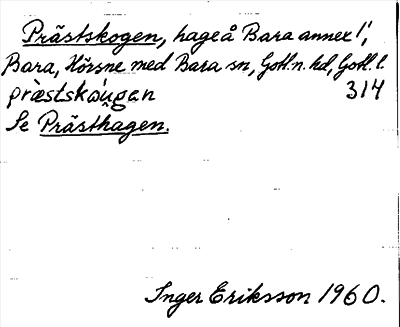 Prästskogen, hage å Bara annex /',
Bara, Hörsne med Bara sn, Gotl. n. hd, Gotl. l.
præstskou̯gen 314
Se Prästhagen.
Inger Eriksson 1960.